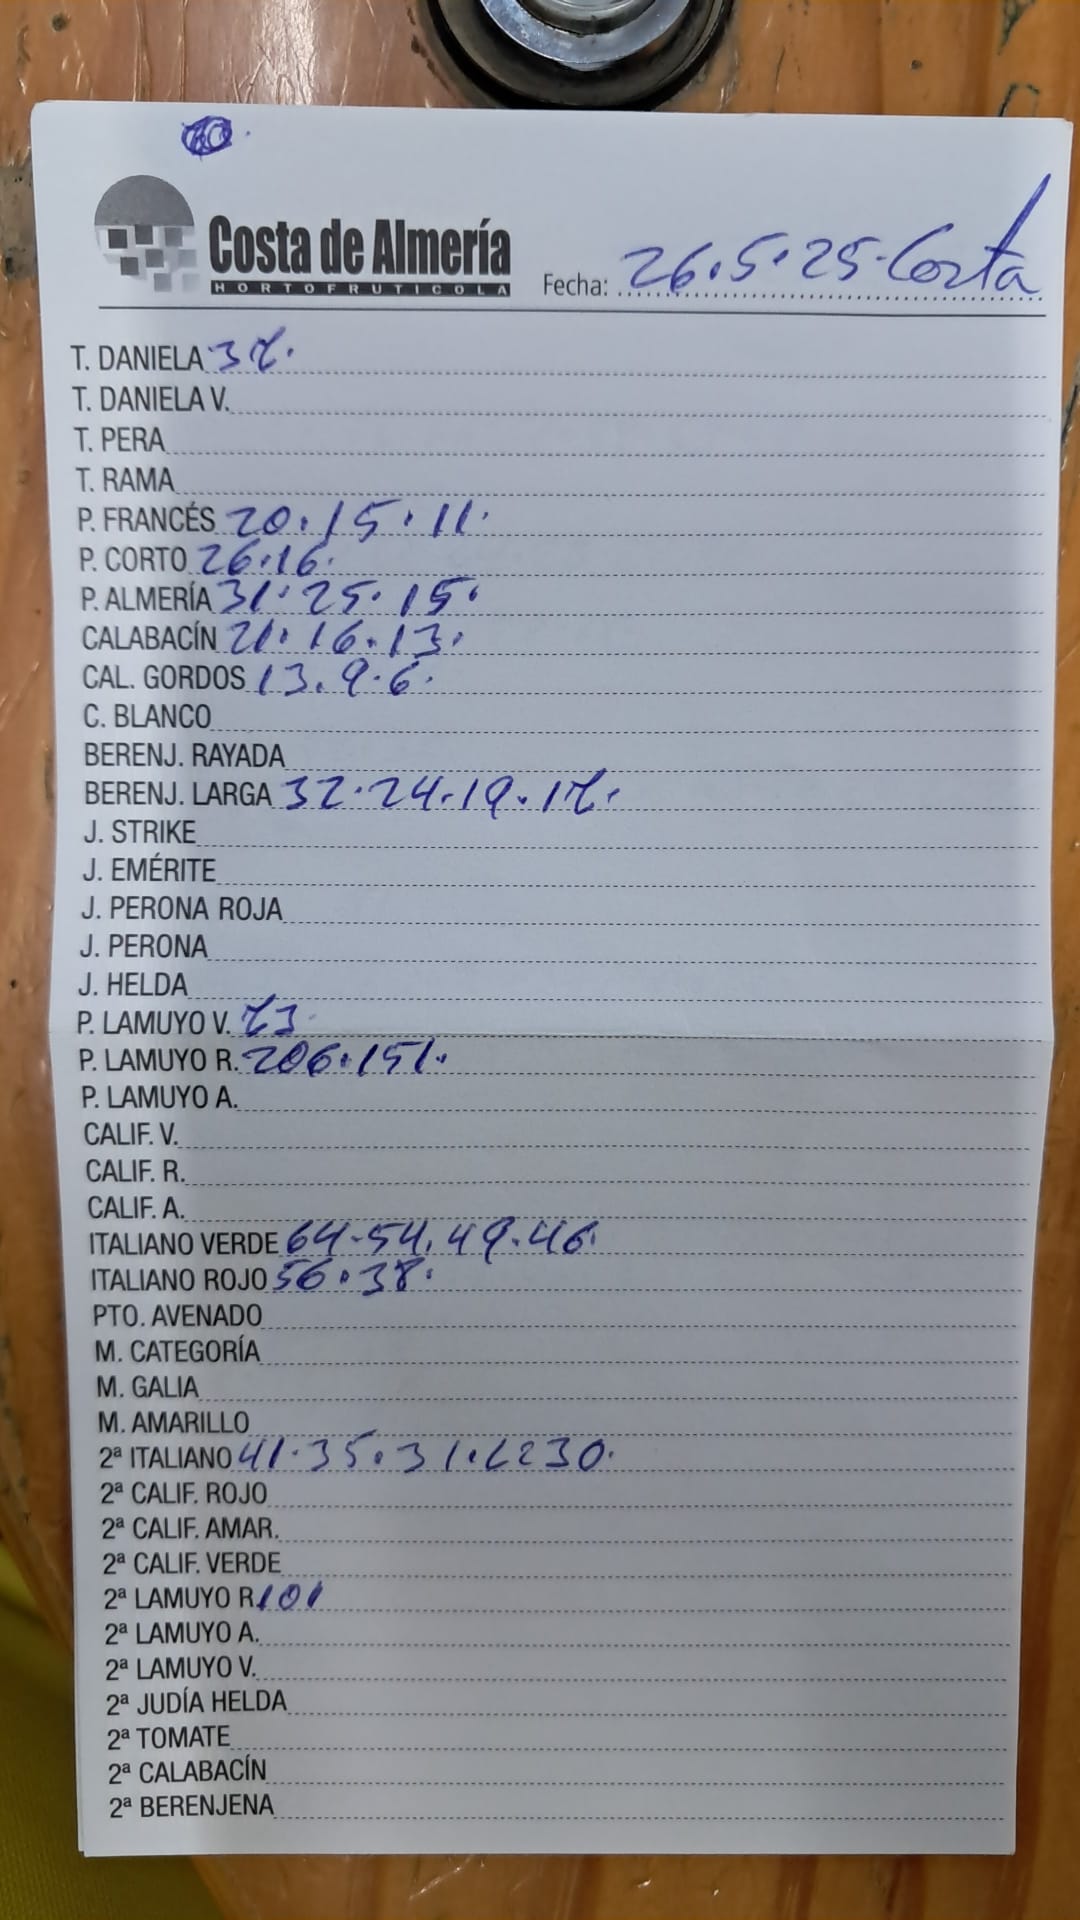 Costa de Almería
HORTOFRUTICOLA
Fecha: 26.5.25 Corta
T. DANIELA 37.
T. DANIELA V.
T. PERA
T. RAMA
P. FRANCÉS 20.15.11.
P. CORTO 26.16.
P. ALMERÍA 31.25.15.
CALABACÍN 21.16.13.
CAL. GORDOS 13.9.6.
C. BLANCO
BERENJ. RAYADA
BERENJ. LARGA 32.24.19.17.
J. STRIKE
J. EMÉRITE
J. PERONA ROJA
J. PERONA
J. HELDA
P. LAMUYO V. 73
P. LAMUYO R. 206.151.
P. LAMUYO A.
CALIF. V.
CALIF. R.
CALIF. A.
ITALIANO VERDE 64.54.49.46.
ITALIANO ROJO 56.38.
PTO. AVENADO
M. CATEGORÍA
M. GALIA
M. AMARILLO
2ª ITALIANO 41.35.31. 30.
2ª CALIF. ROJO
2ª CALIF. AMAR.
2ª CALIF. VERDE
2ª LAMUYO R. 101
2ª LAMUYO A.
2ª LAMUYO V.
2ª JUDÍA HELDA
2ª TOMATE
2ª CALABACÍN
2ª BERENJENA